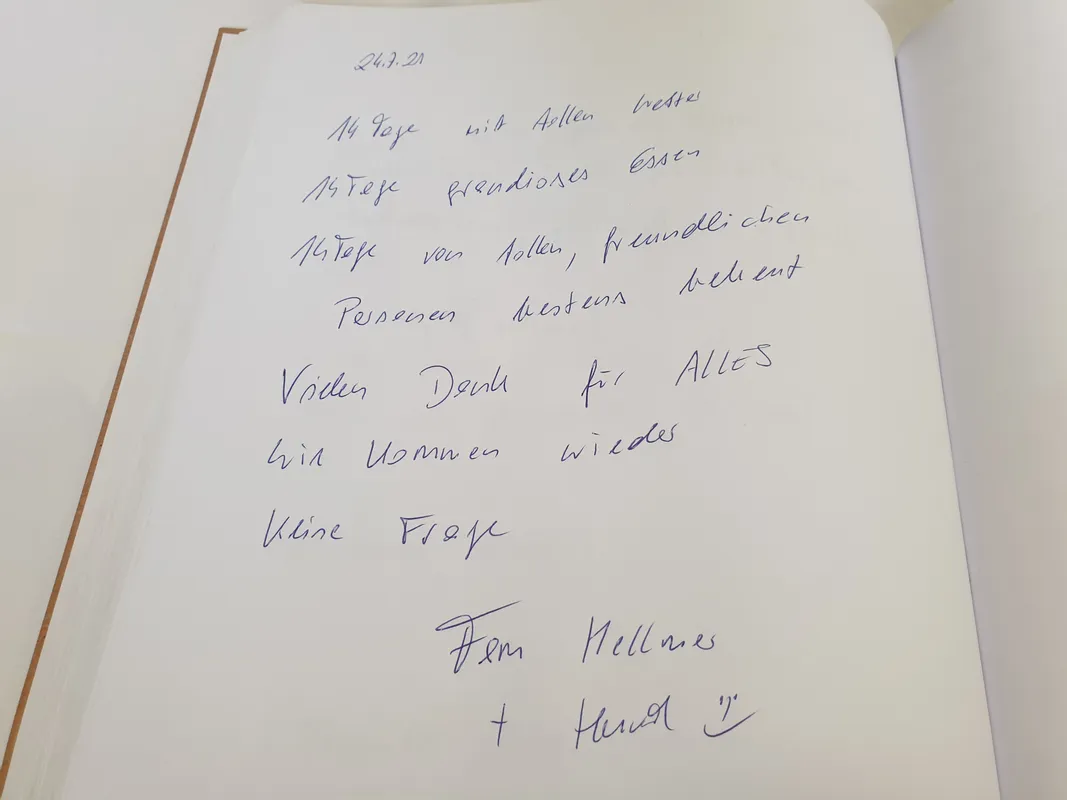 24.7.21
14 Tage mit tollen Wetter
14 Tage grandioses Essen
14 Tage von tollen, freundlichen
Personen bestens bekent
Vielen Dank für ALLES
Wir kommen wieder
Keine Frage
Fam Hellmer
+ Hund